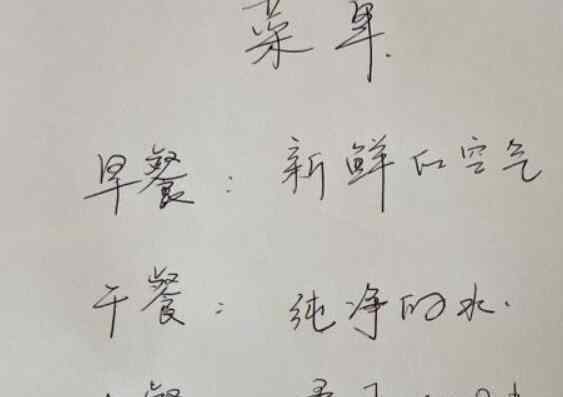 菜单.
早餐：新鲜的空气
干餐：纯净的水.